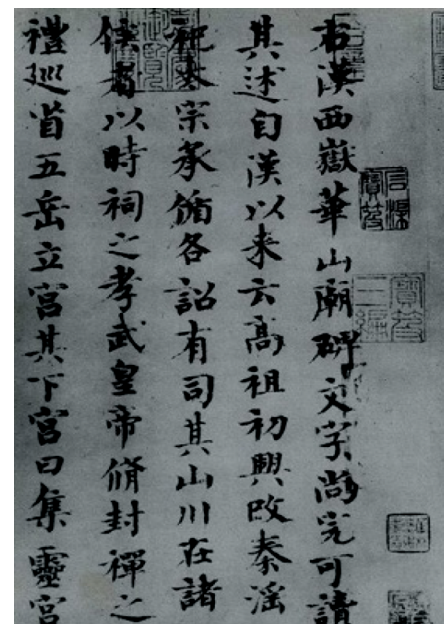 右漢西嶽華山廟碑文字尚完可讀
其述自漢以来云高祖初興改秦淫
祀太宗承循各詔有司其山川在諸
侯者以時祠之孝武皇帝脩封禪之
禮巡省五岳立宮其下宮曰集靈宮
石渠寶笈
寶笈三編